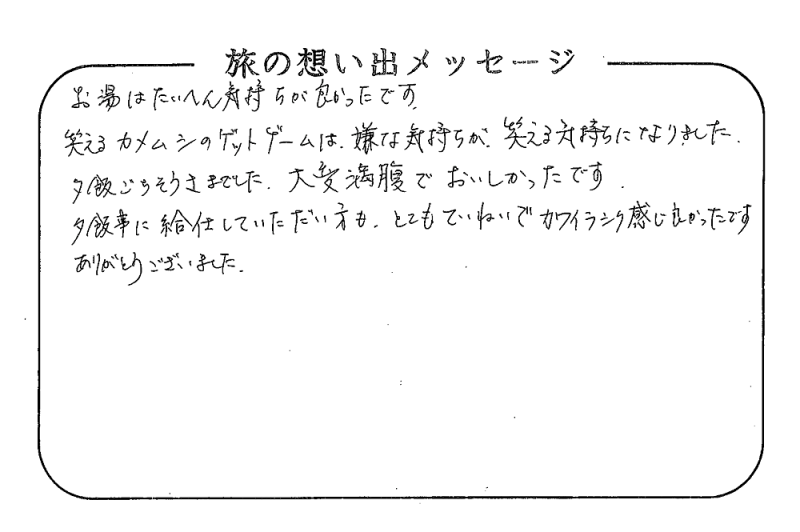 旅の想い出メッセージ
お湯はたいへん気持ちが良かったです。
笑えるカメムシのゲットゲームは、嫌な気持ちが、笑える気持ちになりました。
夕飯ごちそうさまでした。大変満腹でおいしかったです。
夕飯事に給仕していただい方も、とてもていねいでカワイラシク感じ良かったです
ありがとうございました。